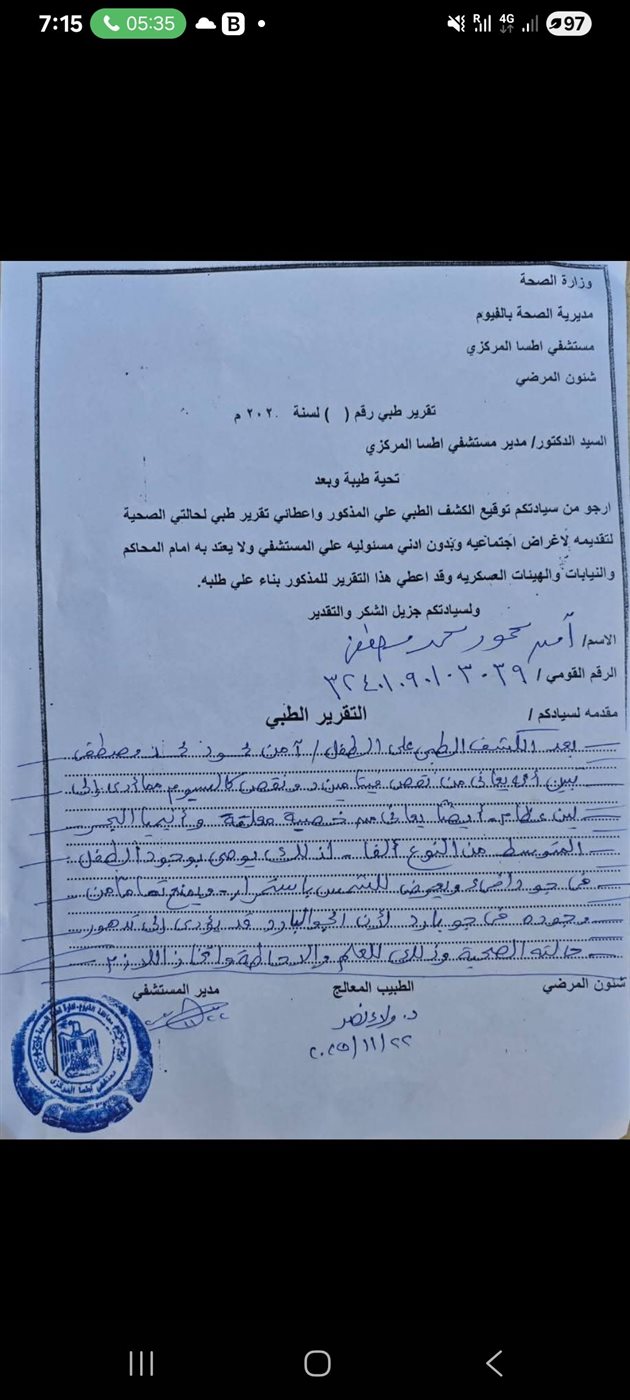 7:15 05:35 B R 4G 97
وزارة الصحة
مديرية الصحة بالفيوم
مستشفي اطسا المركزي
شئون المرضي
تقرير طبي رقم ( ) لسنة ٢٠٢٠ م
السيد الدكتور/ مدير مستشفي اطسا المركزي
تحية طيبة وبعد
ارجو من سيادتكم توقيع الكشف الطبي علي المذكور واعطائي تقرير طبي لحالتي الصحية
لتقديمه لاغراض اجتماعيه وبدون ادني مسئوليه علي المستشفي ولا يعتد به امام المحاكم
والنيابات والهيئات العسكريه وقد اعطي هذا التقرير للمذكور بناء علي طلبه.
ولسيادتكم جزيل الشكر والتقدير
الاسم/ محمود محمد مصطفى
الرقم القومي /
مقدمه لسيادكم / التقرير الطبي
بعد الكشف الطبي على الطفل / مصطفى
تبين أنه يعانى من نقص فيتامين د ونقص كالسيوم مما أدى إلى
لين عظام - أيضًا يعانى من خصية معلقة وأنيميا البحر
المتوسط من النوع ألفا - لذلك يوصى بوجود الطفل
فى جو دافئ ويعرض للشمس باستمرار - ويمنع تمامًا من
وجوده فى جو بارد لأن الجو البارد قد يؤدى إلى تدهور
حالته الصحية وذلك للعلم والاحاطة واتخاذ اللازم
شئون المرضي الطبيب المعالج مدير المستشفي
د. ولاء نصر
٢٠٢٥/١١/٢٢
مستشفى اطسا المركزى